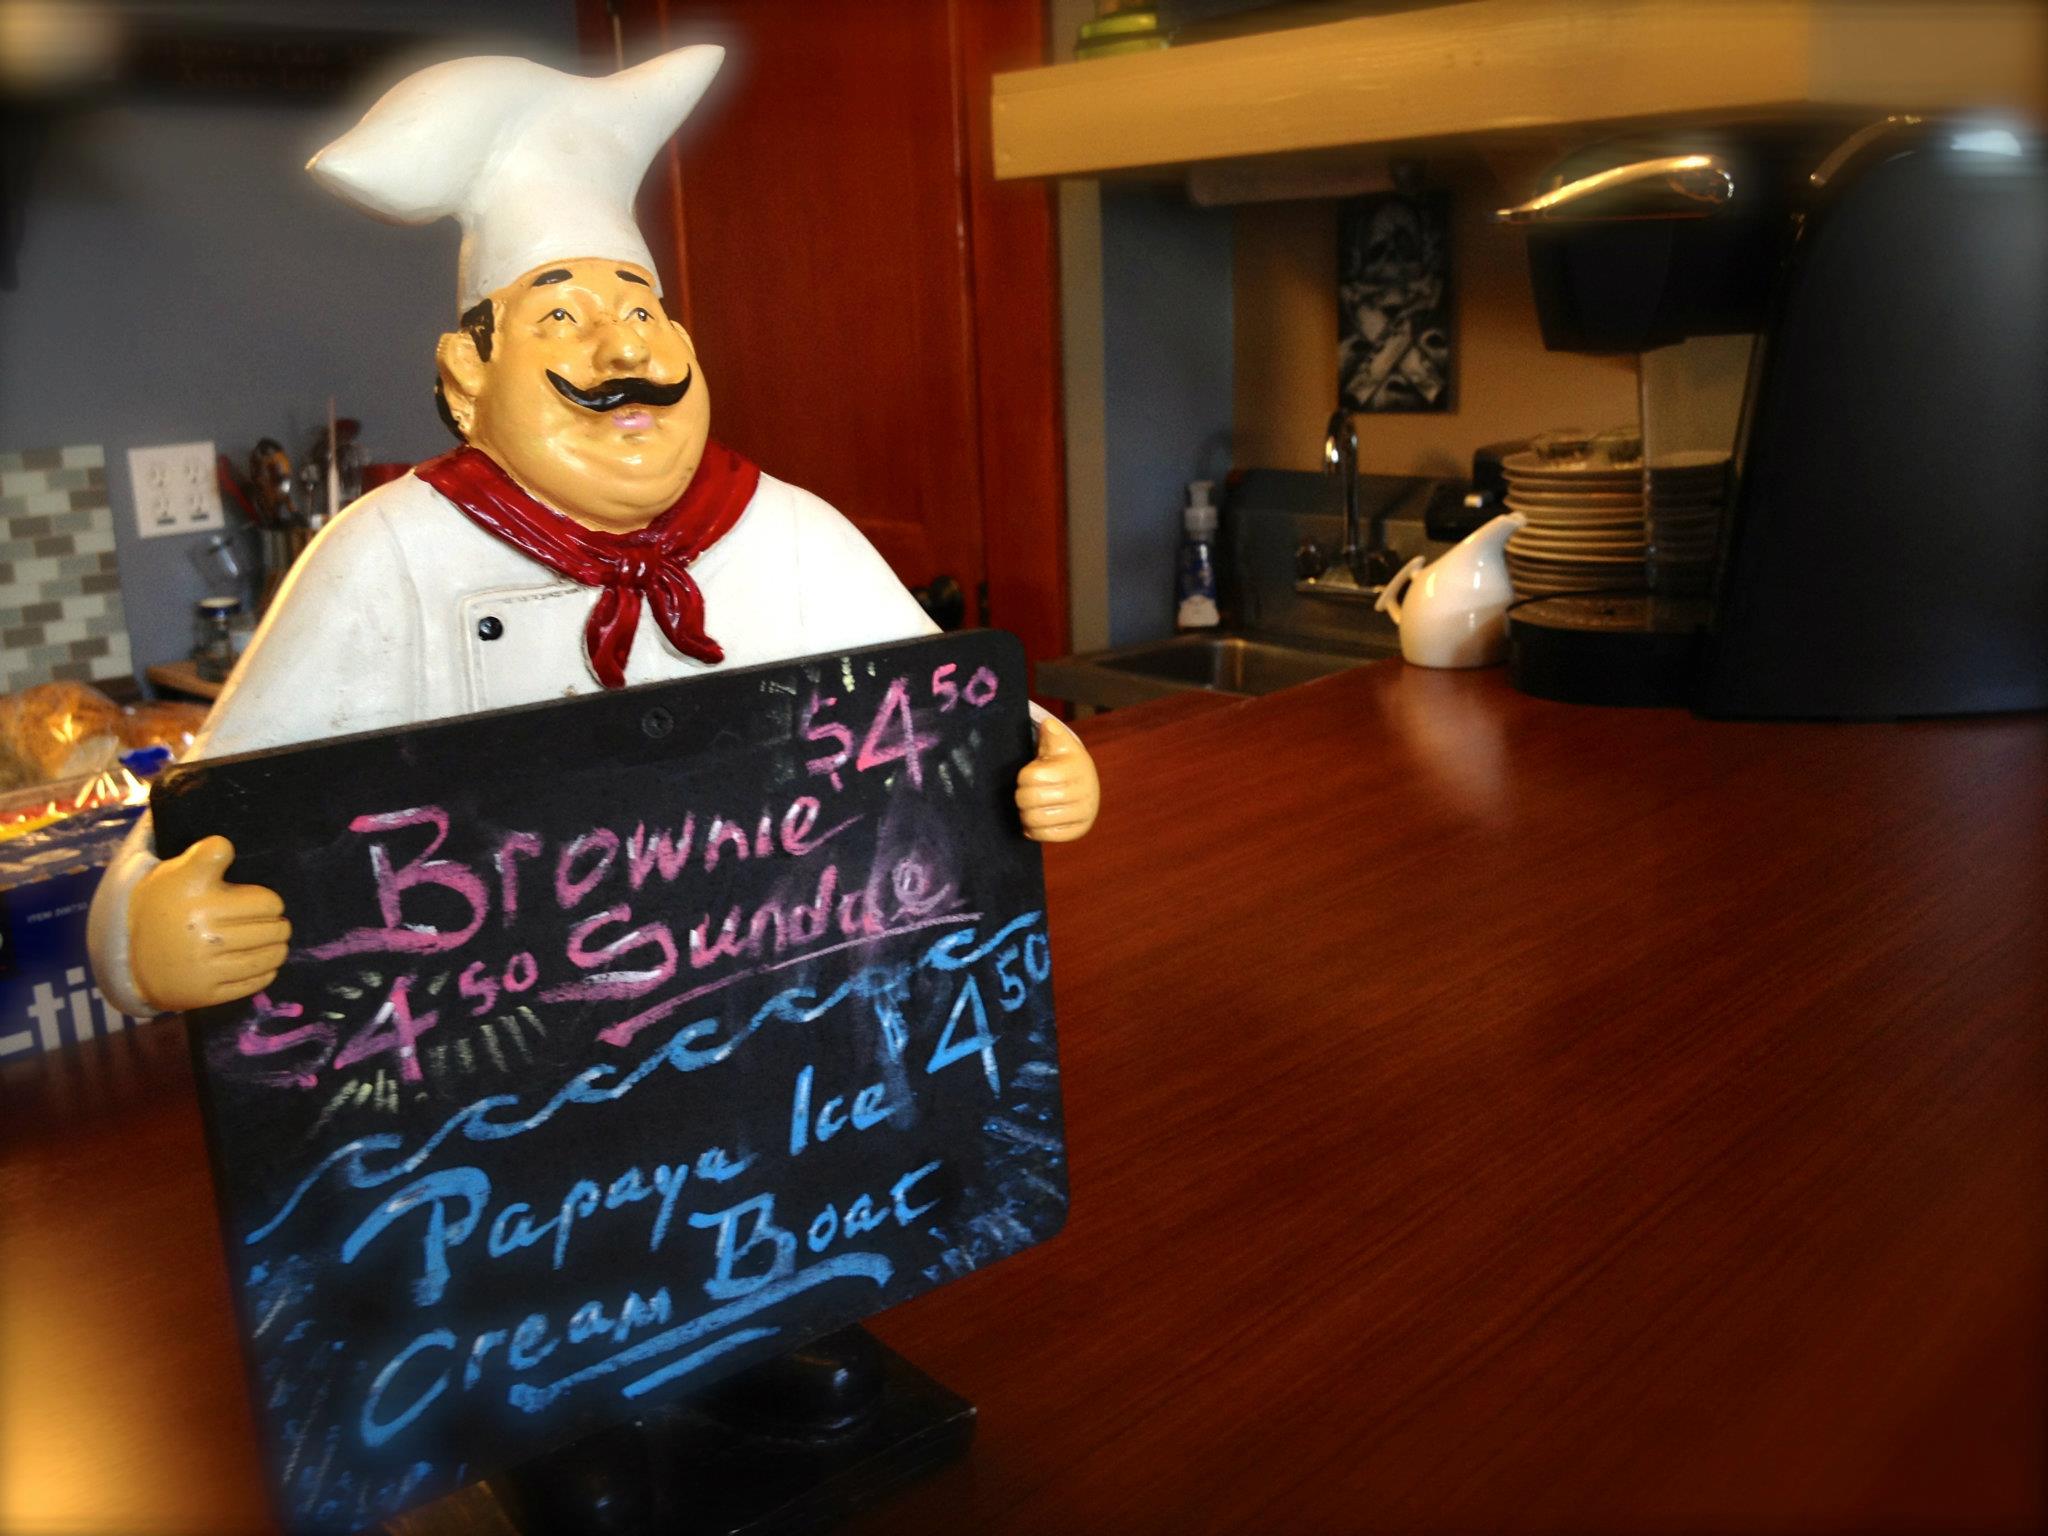 $4.50
Brownie
$4.50 Sundae
4.50
Papaya Ice
Cream Boat